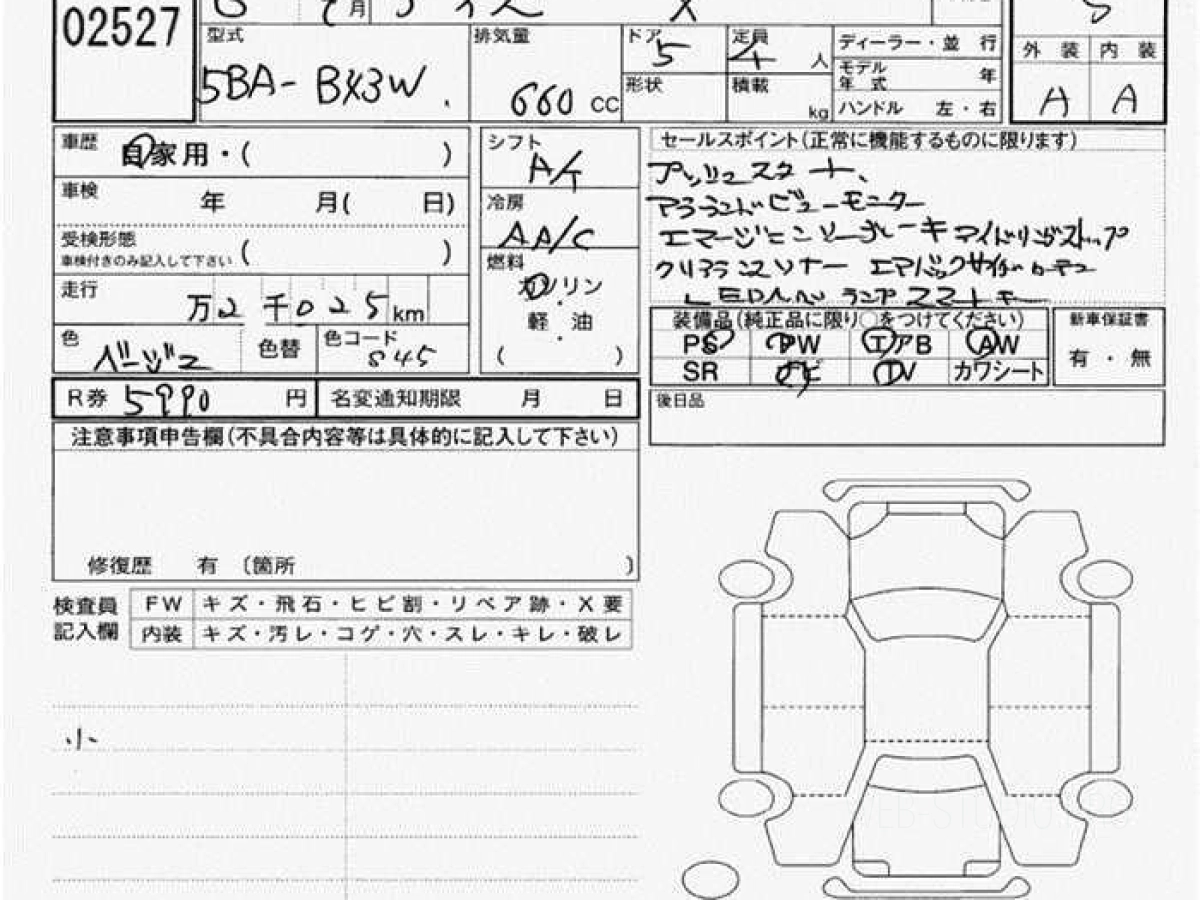 02527
月 X S
型式 排気量 ドア 5 定員 4 人 ディーラー・並 行 外 装 内 装
5BA- B43W 660 CC 形状 積載 kg モデル 年 式 年 A A
ハンドル 左・右
車歴 自家用・( ) シフト A/T セールスポイント(正常に機能するものに限ります)
プッシュスタート、
車検 年 月( 日) 冷房 AA/C アラウンドビューモニター
エマージェンシーブレーキ アイドリングストップ
受検形態 ( ) 燃料 ガソリン クリアランスソナー エアバックサイドカーテン
車検付きのみ記入して下さい
走行 万2 千025 km 軽・油 LEDヘッドランプ スマートキー
色 ベージュ 色替 色コード 845 ( ) 装備品(純正品に限り○をつけてください) 新車保証書
PS PW エアB AW 有・無
SR ナビ TV カワシート
R券 5990 円 名変通知期限 月 日 後日品
注意事項申告欄(不具合内容等は具体的に記入して下さい)
修復歴 有 〔箇所 〕
検査員 FW キズ・飛石・ヒビ割・リペア跡・X要
記入欄 内装 キズ・汚レ・コゲ・穴・スレ・キレ・破レ
小